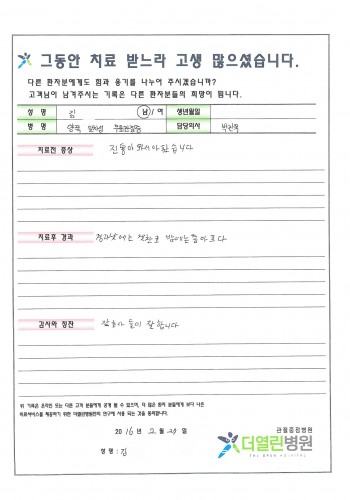 그동안 치료 받느라 고생 많으셨습니다.
다른 환자분에게도 힘과 용기를 나누어 주시겠습니까?
고객님이 남겨주시는 기록은 다른 환자분들의 희망이 됩니다.
성 명 김 남/여 생년월일
병 명 양쪽 담당의사
치료전 증상
치료후 경과
감사와 칭찬 간호사 들이 잘합니다
위 기록은 온라인 또는 다른 고객 분들에게 공개 될 수 있으며, 더 많은 환자 분들에게 보다 나은
의료서비스를 제공하기 위한 더열린병원만의 연구에 사용 되는 것을 동의합니다.
2016 년 2 월 29 일
관절중점병원
더열린병원
THE OPEN HOSPITAL
성 명 : 김